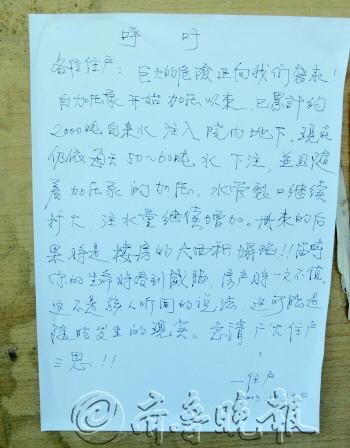 呼 吁
各位住户：巨大的危险正向我们袭来！
自加压泵开始加压以来，已累计约
2000吨自来水注入院内地下，现在
仍依每天50～60吨水下注，并且随
着加压泵的加压，水管裂口继续
扩大，注水量继续增加。带来的后
果将是楼房的大面积塌陷!!届时
你的生命将受到威胁，房产将一文不值。
这不是骇人听闻的说法，这可能是
随时发生的现实。恳请广大住户
三思!!
一住户
2013
齐鲁晚报